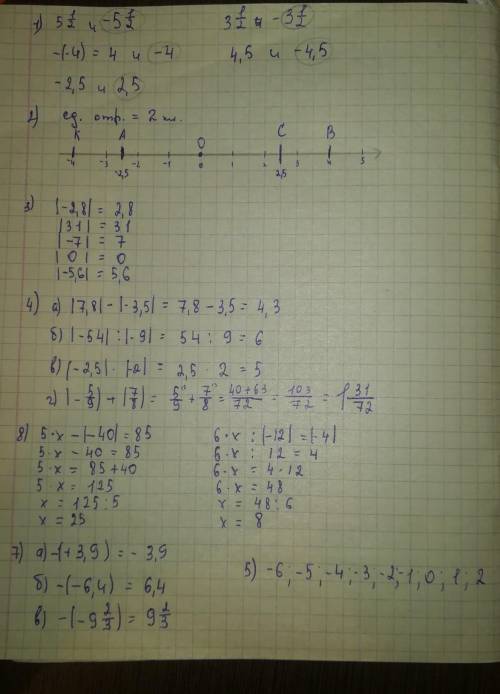 1) 5 1/2 и -5 1/2    3 1/2 и -3 1/2
-(-4) = 4 и -4    4,5 и -4,5
-2,5 и 2,5
2) ед. отр. = 2 кл.
K A O C B
-4 -3 -2,5 -2 -1 0 1 2 2,5 3 4 5
3) |-2,8| = 2,8
|31| = 31
|-7| = 7
|0| = 0
|-5,6| = 5,6
4) а) |7,8| - |-3,5| = 7,8 - 3,5 = 4,3
б) |-54| : |-9| = 54 : 9 = 6
в) |-2,5| · |-2| = 2,5 · 2 = 5
г) |-5/9| + |7/8| = 5/9 + 7/8 = 40+63/72 = 103/72 = 1 31/72
8) 5·x - |-40| = 85    6·x : |-12| = |-4|
5·x - 40 = 85    6·x : 12 = 4
5·x = 85+40    6·x = 4·12
5·x = 125    6·x = 48
x = 125:5    x = 48:6
x = 25    x = 8
7) а) -(+3,9) = -3,9
б) -(-6,4) = 6,4
в) -(-9 2/3) = 9 2/3
5) -6; -5; -4; -3; -2; -1, 0; 1; 2